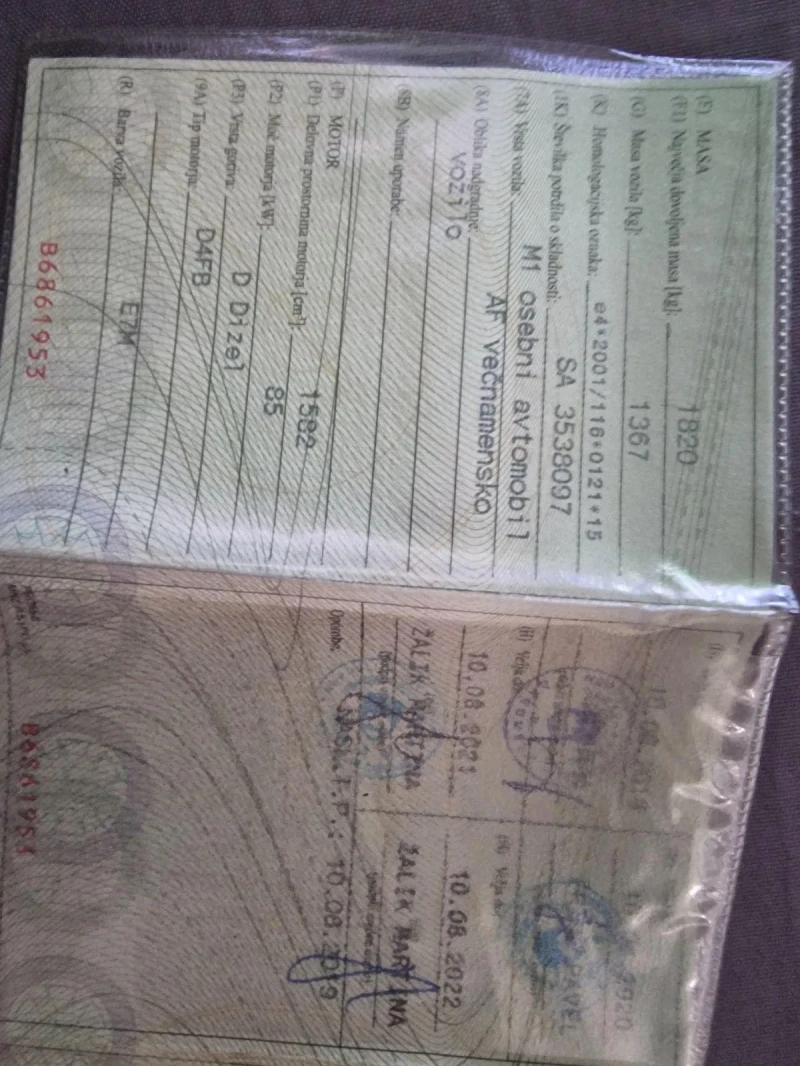 (F) MASA
(F1) Največja dovoljena masa [kg]: 1820
(G) Masa vozila [kg]: 1367
(K) Homologacijska oznaka: e4*2001/116*0121*15
(1K) Številka potrdila o skladnosti: SA 3538097
(7A) Vrsta vozila: M1 osebni avtomobil
(8A) Oblika nadgradnje: AF večnamensko
vozilo
(8B) Namen uporabe:
(P) MOTOR
(P1) Delovna prostornina motorja [cm³]: 1582
(P2) Moč motorja [kW]: 85
(P3) Vrsta goriva: D Dizel
(9A) Tip motorja: D4FB
(R) Barva vozila: E7M
B6861953
(H) Velja do:
10.08.2021
ŽALIK MARTINA
(H) Velja do:
PAVEL
10.08.2022
ŽALIK MARTINA
Opombe:
10.08.2019
B6861953